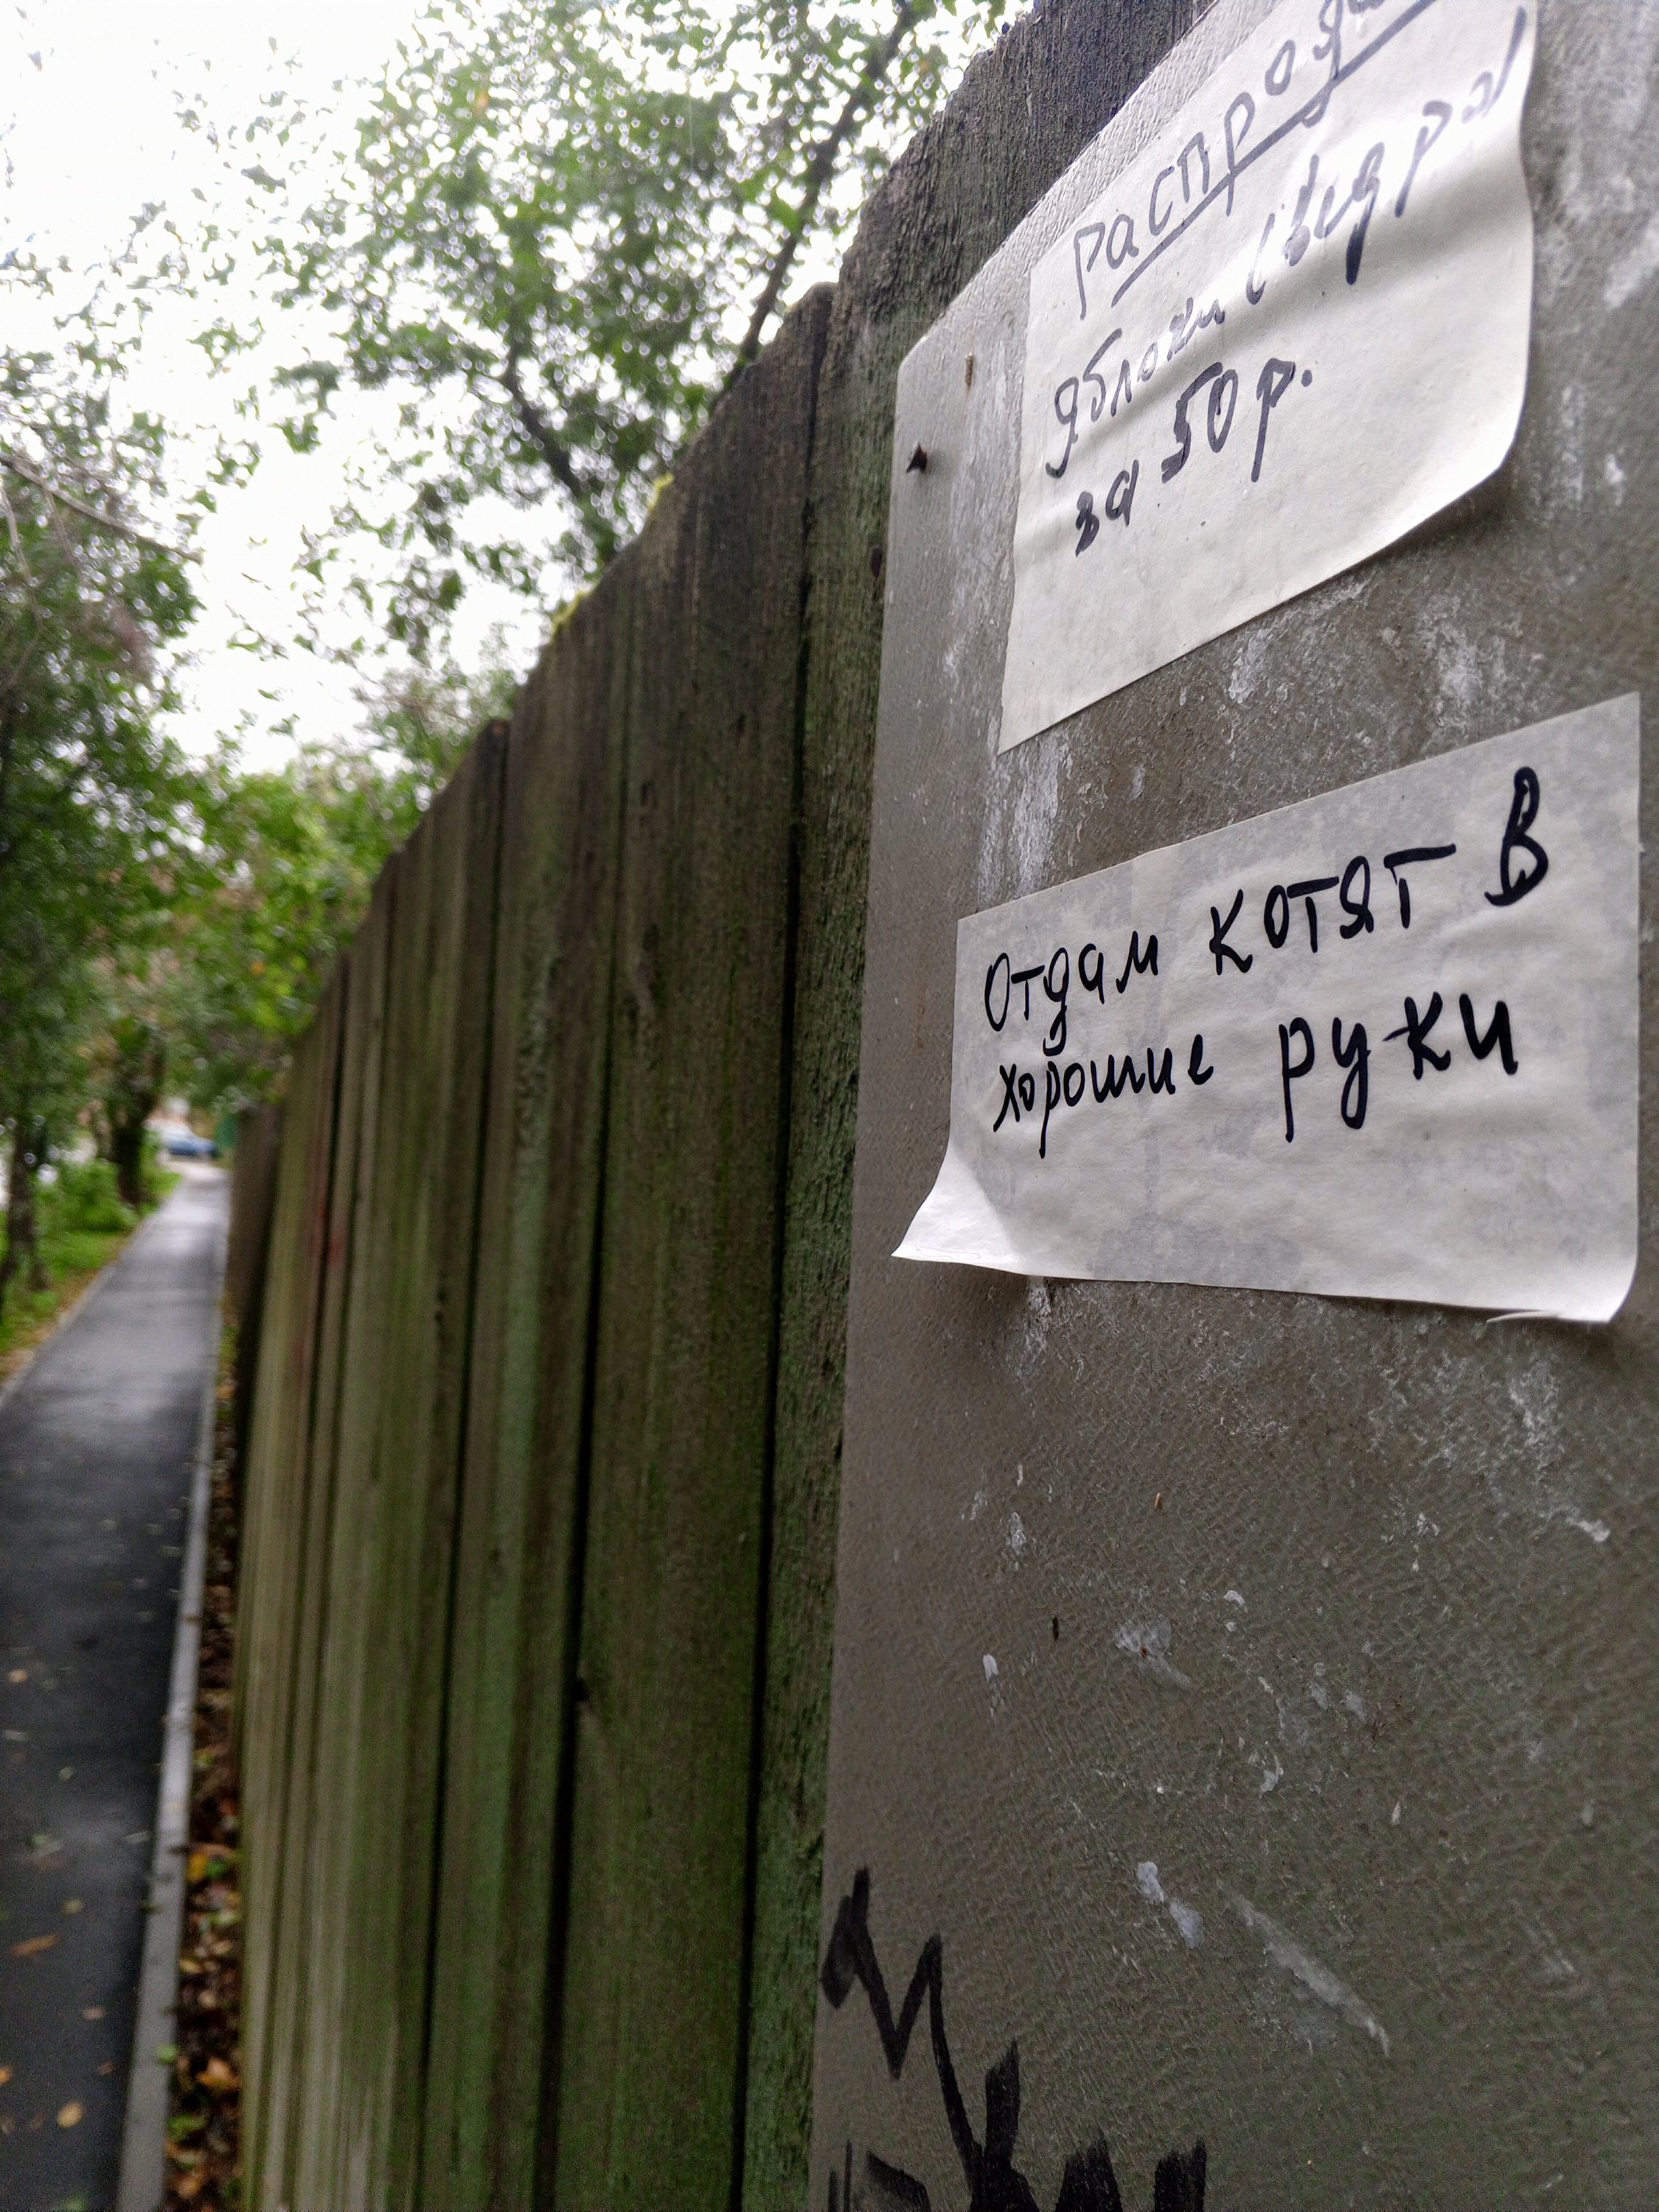 распрода
яблоки (ведра)
за 50 р.
Отдам котят в
хорошие руки